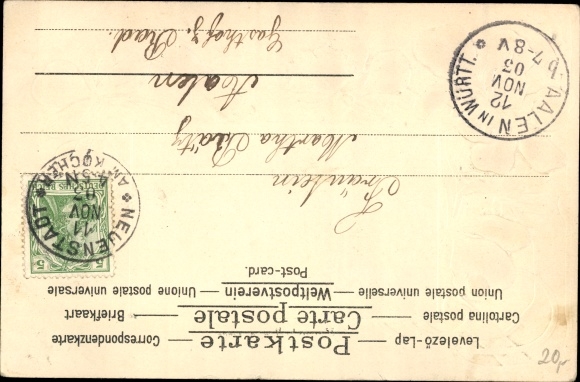 Levelező-Lap Postkarte Correspondenzkarte
Cartolina postale Carte postale Briefkaart
Union postale universelle Weltpostverein Unione postale universale
Post-card.
NEUENSTADT AM KOCHER
11
NOV
03
4-5 N
5
AALEN IN WÜRTT.
12
NOV
03
b 7-8 V
Fräulein
Martha
Aalen
Gasthof z. Rad.
20,-